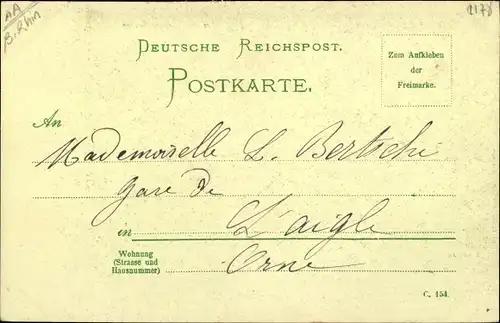 AA
B. Rhin
DEUTSCHE REICHSPOST.
POSTKARTE.
Zum Aufkleben
der
Freimarke.
An
Mademoiselle L. Bertsché
gare de
in L'aigle
Wohnung
(Strasse und
Hausnummer)
Orne
C. 154.